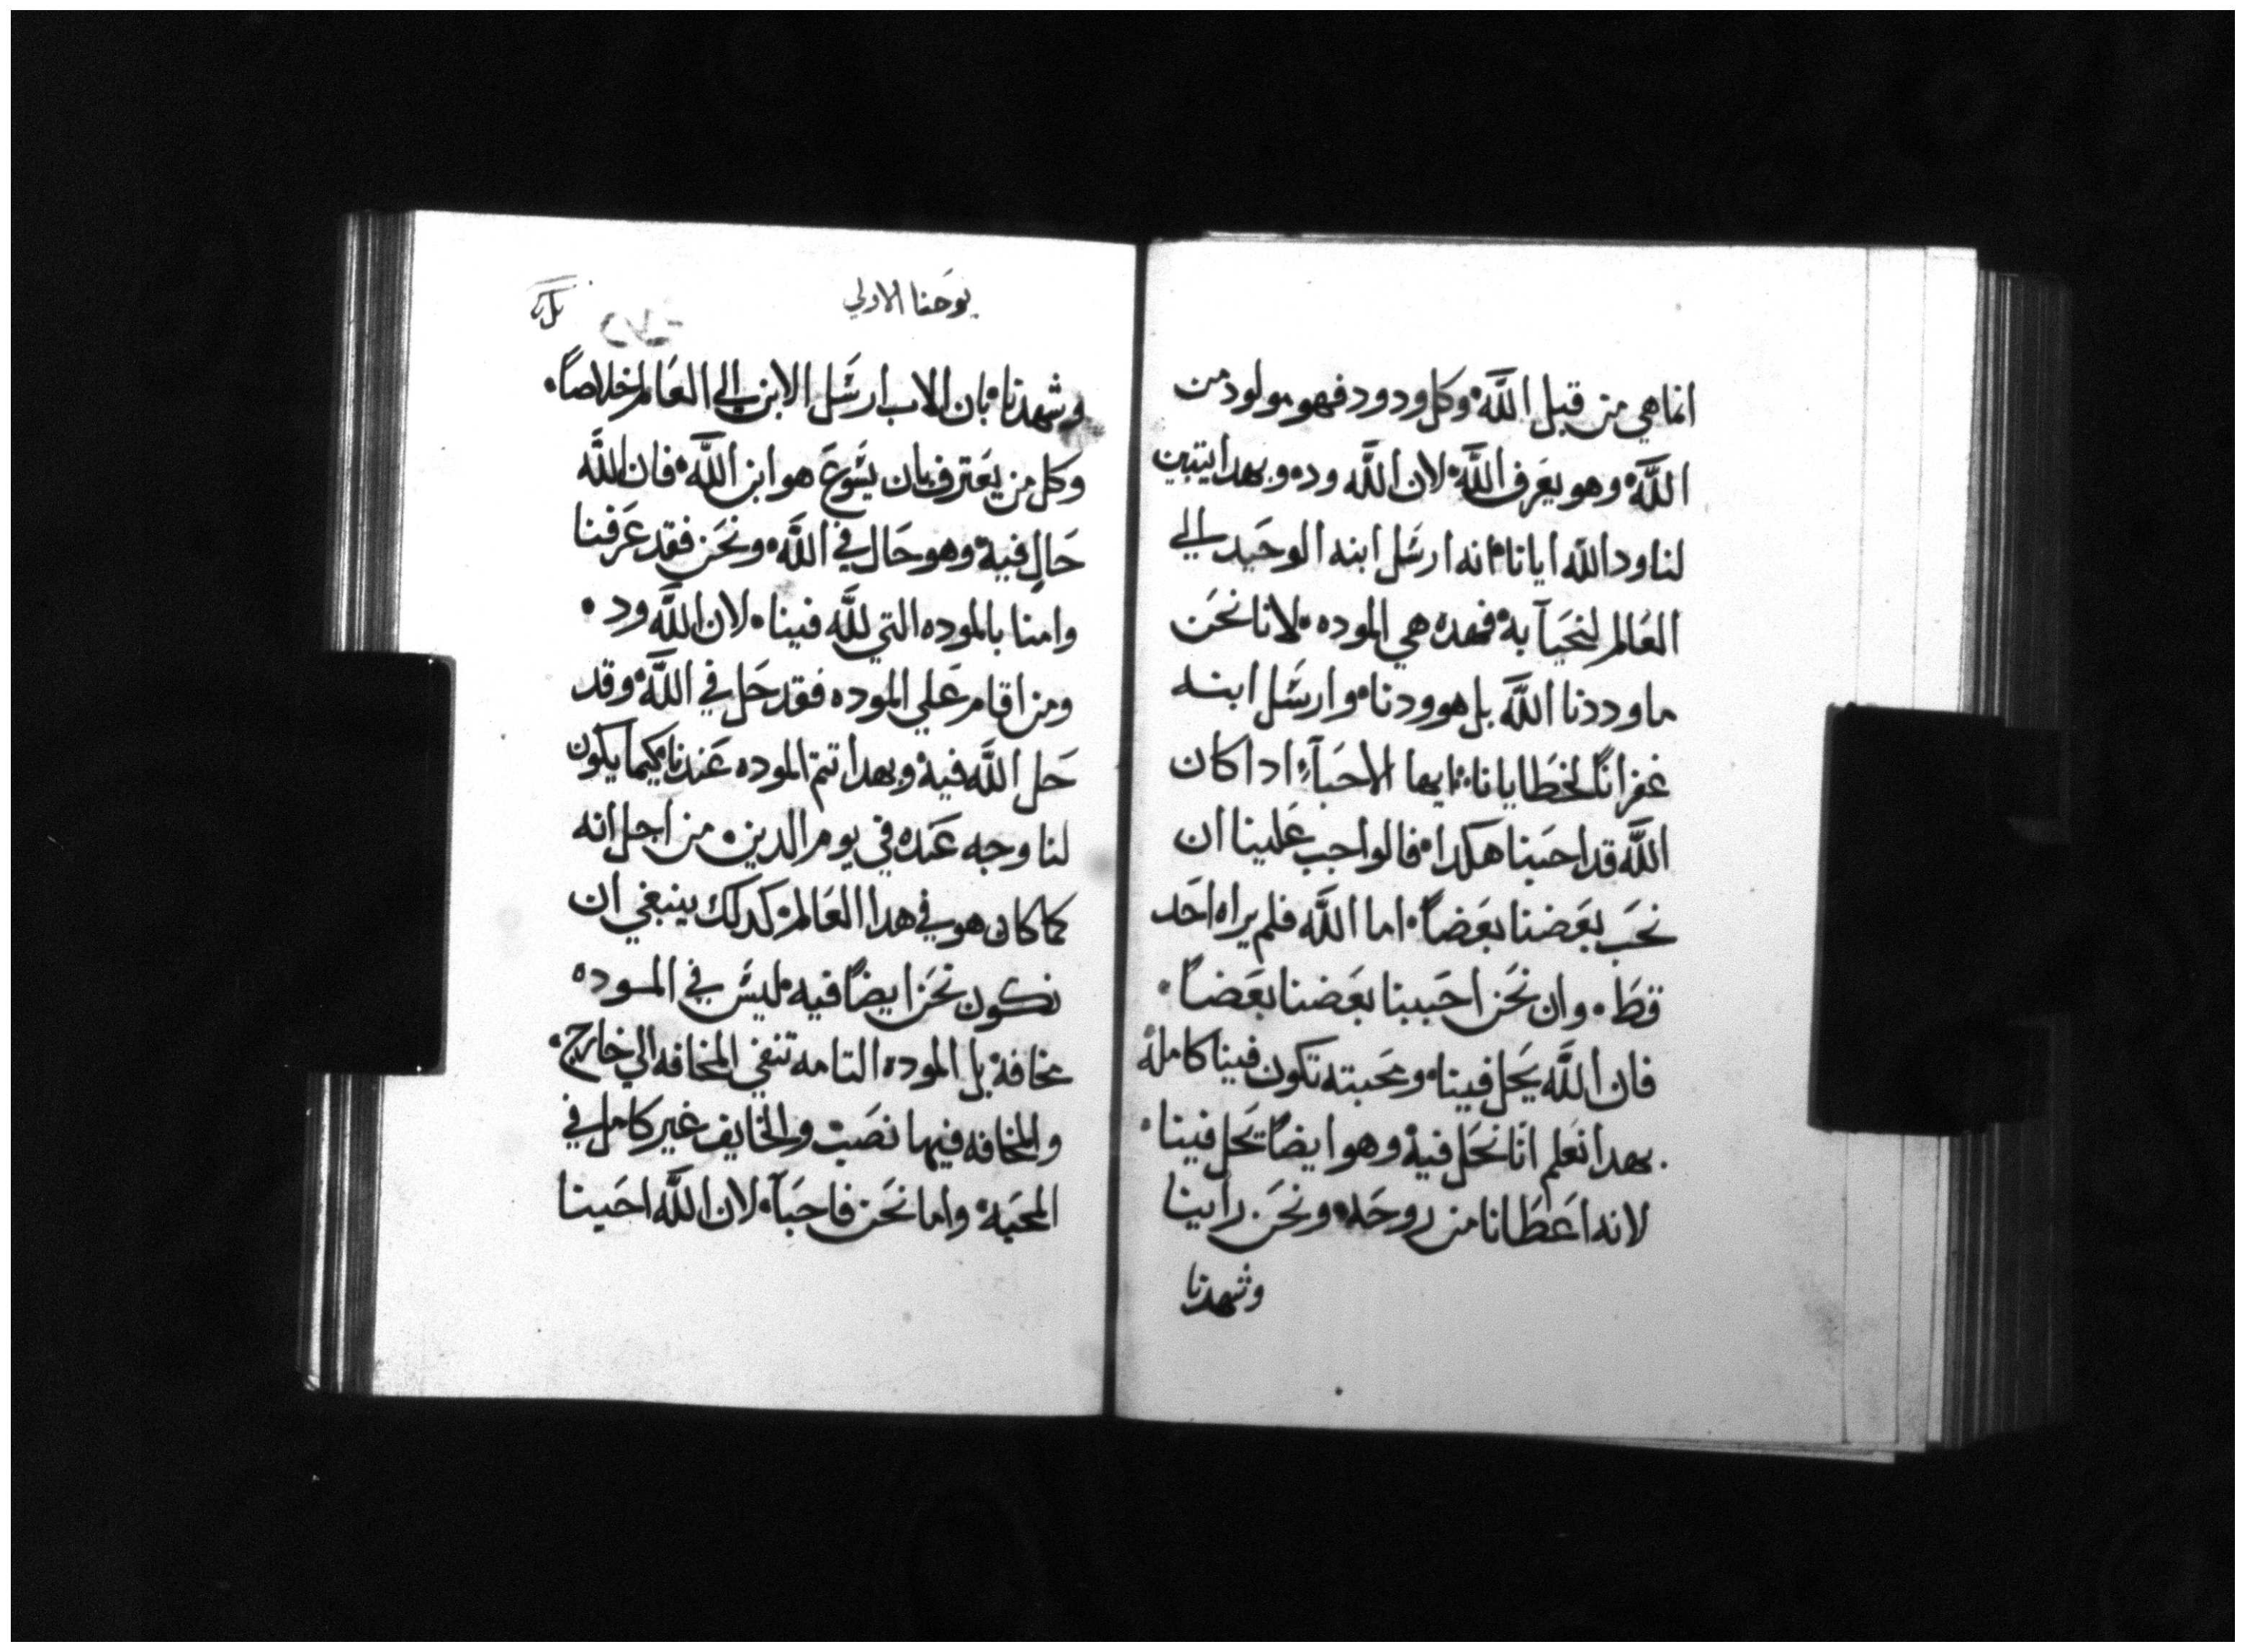 انما هي من قبل اللَّه وكل ودود فهو مولود من
اللَّه وهو يعَرف اللَّه لان اللَّه وده وبهدا يتبين
لنا ود اللَّه ايانا انه ارسَل ابنه الوحَيد الي
العَالم لنحَيآ به فهده هي الموده لانا نحَن
ما وددنا اللَّه بل هو ودنا وارسَل ابنه
غفرانًا لخطَايانا ايها الاحبَآء ادا كان
اللَّه قد احبَنا هكدا فالواجب عَلينا ان
نحَب بعَضنا بعَضاً اما اللَّه فلم يراه احَد
قطَ وان نحَن احَببنا بعَضنا بعَضاً
فان اللَّه يحَل فينا ومحَبته تكون فينا كامله
بهدا نعَلم انّا نحَل فيه وهو ايضاً يحَل فينا
لانه اعَطَانا من روحَه ونحَن راينا
وشهدنا
يوحَنا الاولي
وشهدنا بان الاب ارسَل الابن الي العَالم خلاصاً
وكل من يعَترف بان يسَوعَ هو ابن اللَّه فان اللَّه
حَالٍ فيه وهو حَال في اللَّه ونحَن فقد عَرفنا
وامنا بالموده التي للَّه فينا لان اللَّه ود
ومن اقام عَلي الموده فقد حَل في اللَّه وقد
حَل اللَّه فيه وبهدا تتم الموده عَندنا كيما يكون
لنا وجه عَنده في يوم الدين من اجل انه
كما كان هو في هدا العَالم كدلك ينبغي ان
نكون نحَن ايضاً فيه ليسَ في الموده
مخافه بل الموده التامه تنفي المخافه الي خارج
والمخافه فيها نصَب والخايف غير كامل في
المحَبه واما نحَن فاحِبَآ لان اللَّه احَبنا